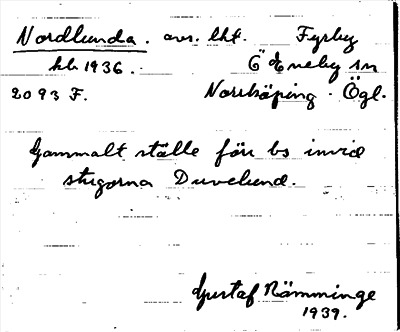 Nordlunda. avs. lht. Fyrby
hb 1936. Ö Eneby sn
2093 F. Norrköping. Ögl.
Gammalt ställe förr bs invid
stugorna Duvelund.
Gustaf Rämminge
1939.